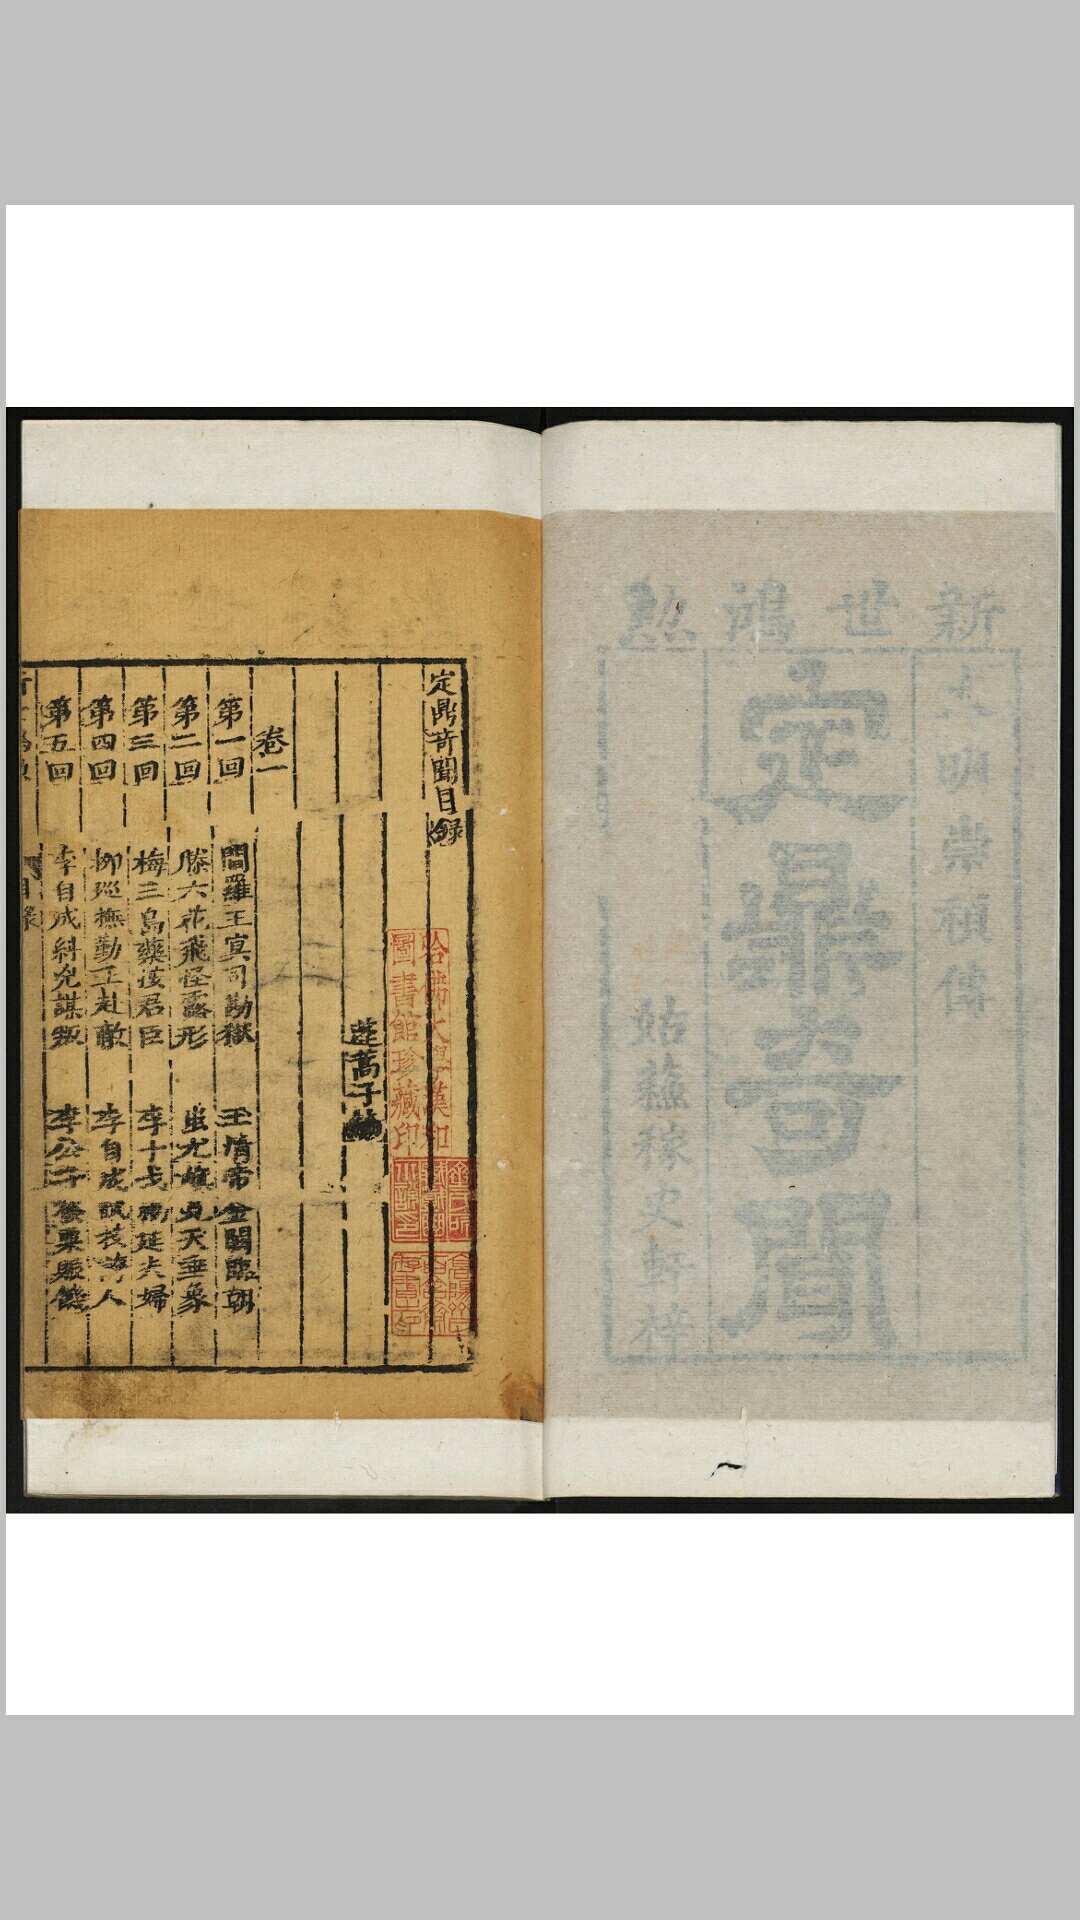 新世鴻勲
大明崇禎傳
定鼎奇聞
姑蘓稼史軒梓
定鼎奇聞目録
哈佛大學漢和
圖書館珍藏印
蓬蒿子
卷一
第一回 閻羅王冥司勘獄 玉清帝金闕臨朝
第二回 滕六花飛怪露形 蚩尤旗見天垂象
第三回 梅三島藥 君臣 李十戈 延夫婦
第四回 柳巡撫勤王赴敵 李自成 技 人
第五回 李自成糾兇謀叛 李公子發粟賑饑
目錄